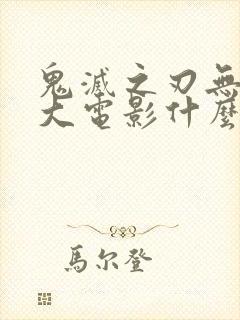 鬼滅之刃無
大電影什麼
馬尔登